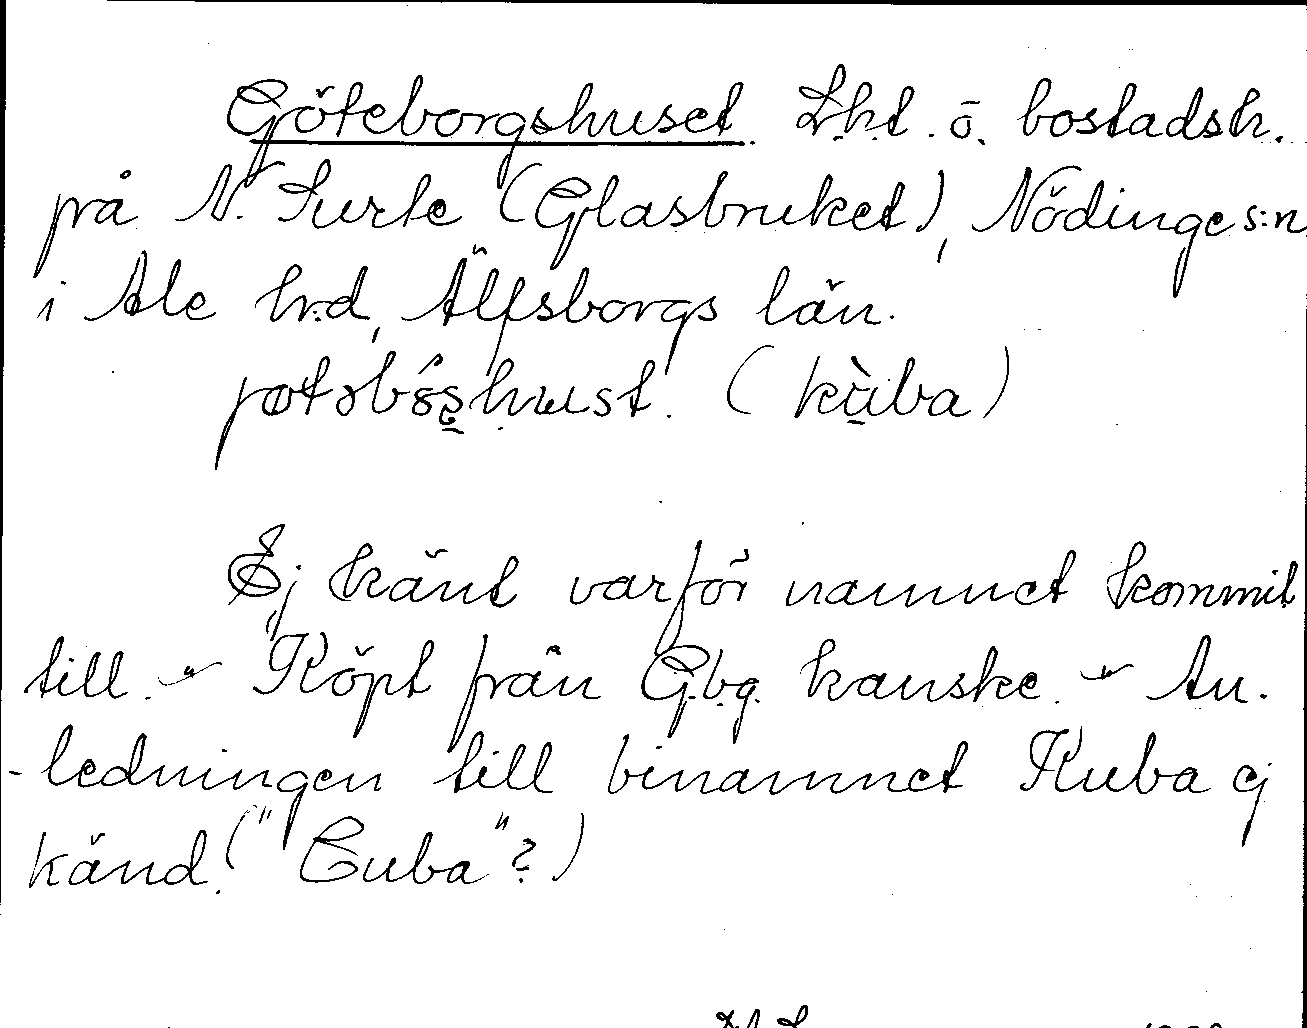 Göteborgshuset. Lht. o. bostadsh.
på N. Surte (Glasbruket), Nödinge s:n
i Ale hrd, Älfsborgs län.
(kùba)
Ej känt varför namnet kommit
till. - Köpt från Gbg. kanske. - An-
-ledningen till binamnet Kuba ej
känd. ("Cuba"?)